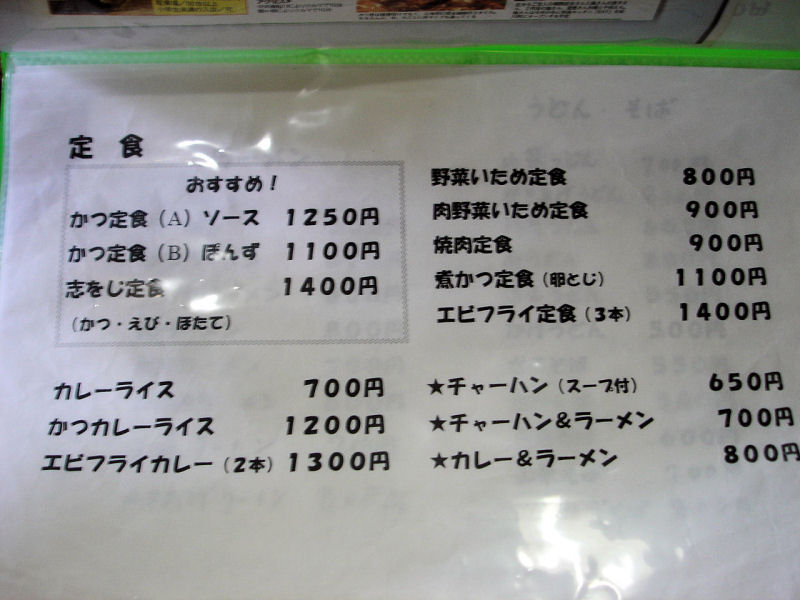 定食
おすすめ！
かつ定食（A）ソース 1250円
かつ定食（B）ぽんず 1100円
志をじ定食 1400円
（かつ・えび・ほたて）
カレーライス 700円
かつカレーライス 1200円
エビフライカレー（2本）1300円
野菜いため定食 800円
肉野菜いため定食 900円
焼肉定食 900円
煮かつ定食（卵とじ） 1100円
エビフライ定食（3本） 1400円
★チャーハン（スープ付） 650円
★チャーハン＆ラーメン 700円
★カレー＆ラーメン 800円
うどん そば